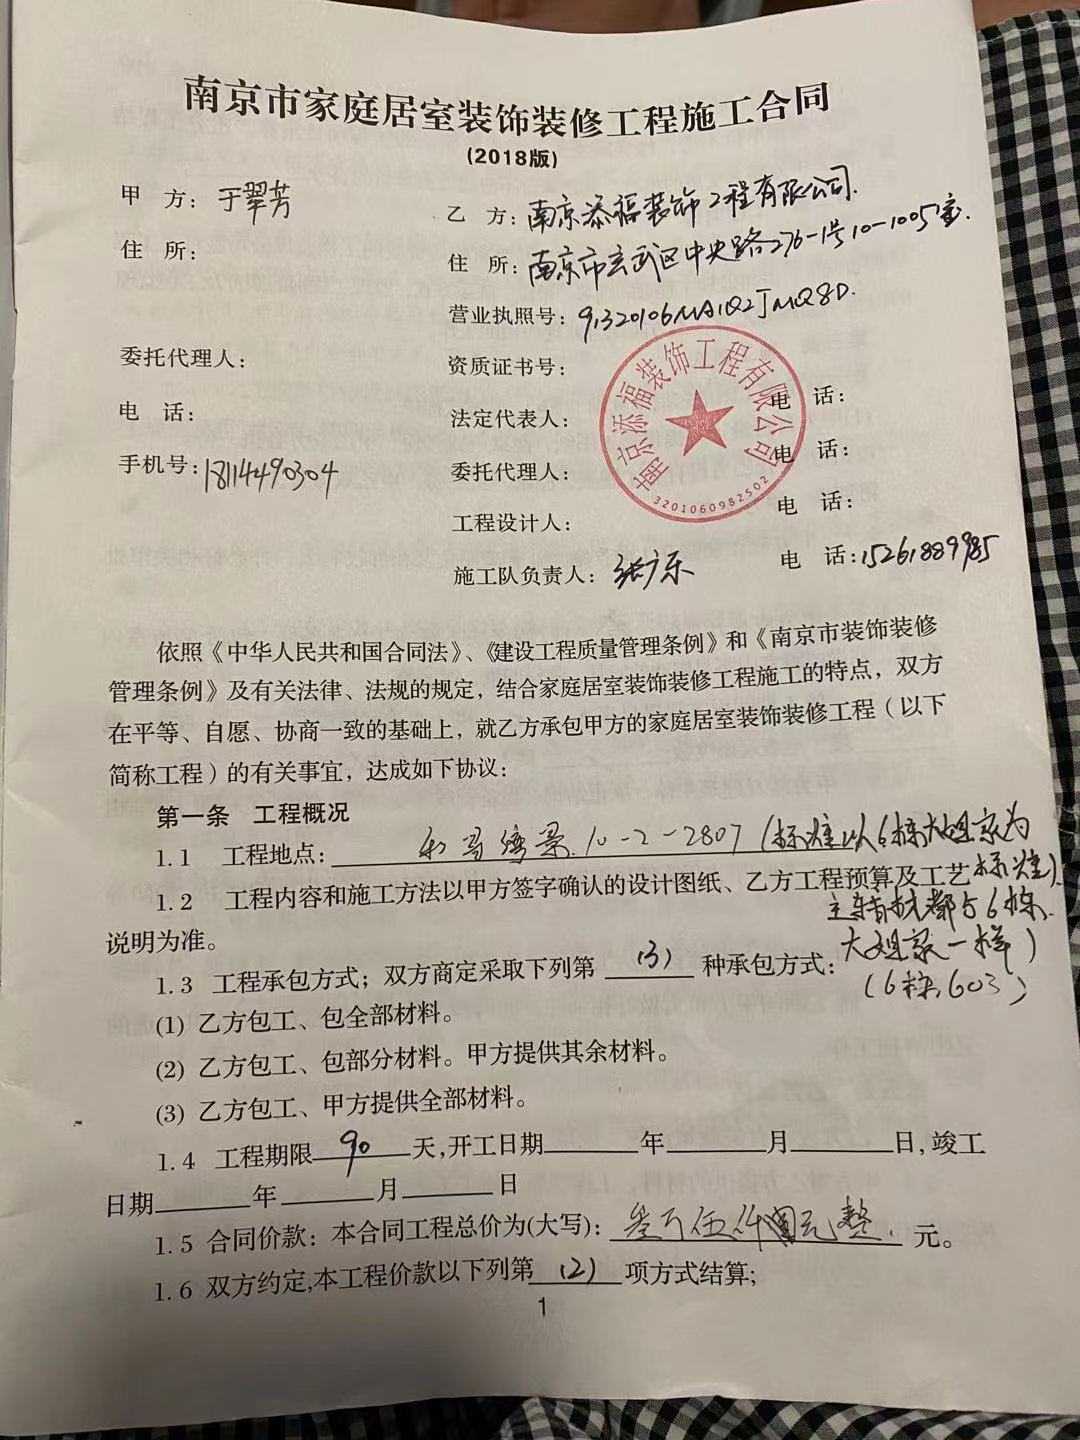 南京市家庭居室装饰装修工程施工合同
(2018版)
甲 方：于翠芳
乙 方：南京添福装饰工程有限公司.
住 所：
住 所：南京市玄武区中央路276-1号10-1005室.
营业执照号：91320106MA1Q2JMQ8D.
委托代理人：
资质证书号：
电 话：
电 话：
法定代表人：
电 话：
手机号：18114490304
委托代理人：
电 话：
工程设计人：
施工队负责人：张广乐
电 话：15261889985
南京添福装饰工程有限公司
3201060982502
依照《中华人民共和国合同法》、《建设工程质量管理条例》和《南京市装饰装修
管理条例》及有关法律、法规的规定，结合家庭居室装饰装修工程施工的特点，双方
在平等、自愿、协商一致的基础上，就乙方承包甲方的家庭居室装饰装修工程（以下
简称工程）的有关事宜，达成如下协议：
第一条 工程概况
1.1 工程地点：10-2-2807（标准以6栋大姐家为
标准）.
1.2 工程内容和施工方法以甲方签字确认的设计图纸、乙方工程预算及工艺
说明为准。
都与6栋
大姐家一样）
（6栋,603）
1.3 工程承包方式；双方商定采取下列第 (3) 种承包方式：
(1) 乙方包工、包全部材料。
(2) 乙方包工、包部分材料。甲方提供其余材料。
(3) 乙方包工、甲方提供全部材料。
1.4 工程期限 90 天,开工日期 年 月 日, 竣工
日期 年 月 日
1.5 合同价款：本合同工程总价为(大写)：叁万伍仟圆元整. 元。
1.6 双方约定,本工程价款以下列第 (2) 项方式结算;
1